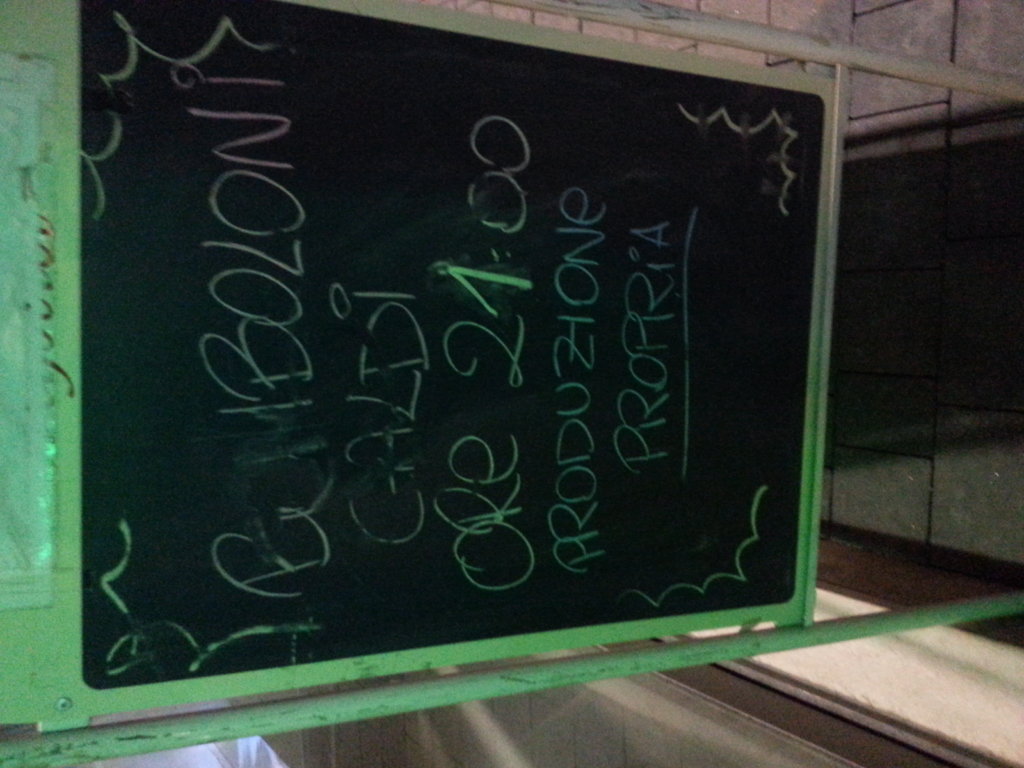 BOMBOLONI
CALDI
ORE 21:00
PRODUZIONE
PROPRIA